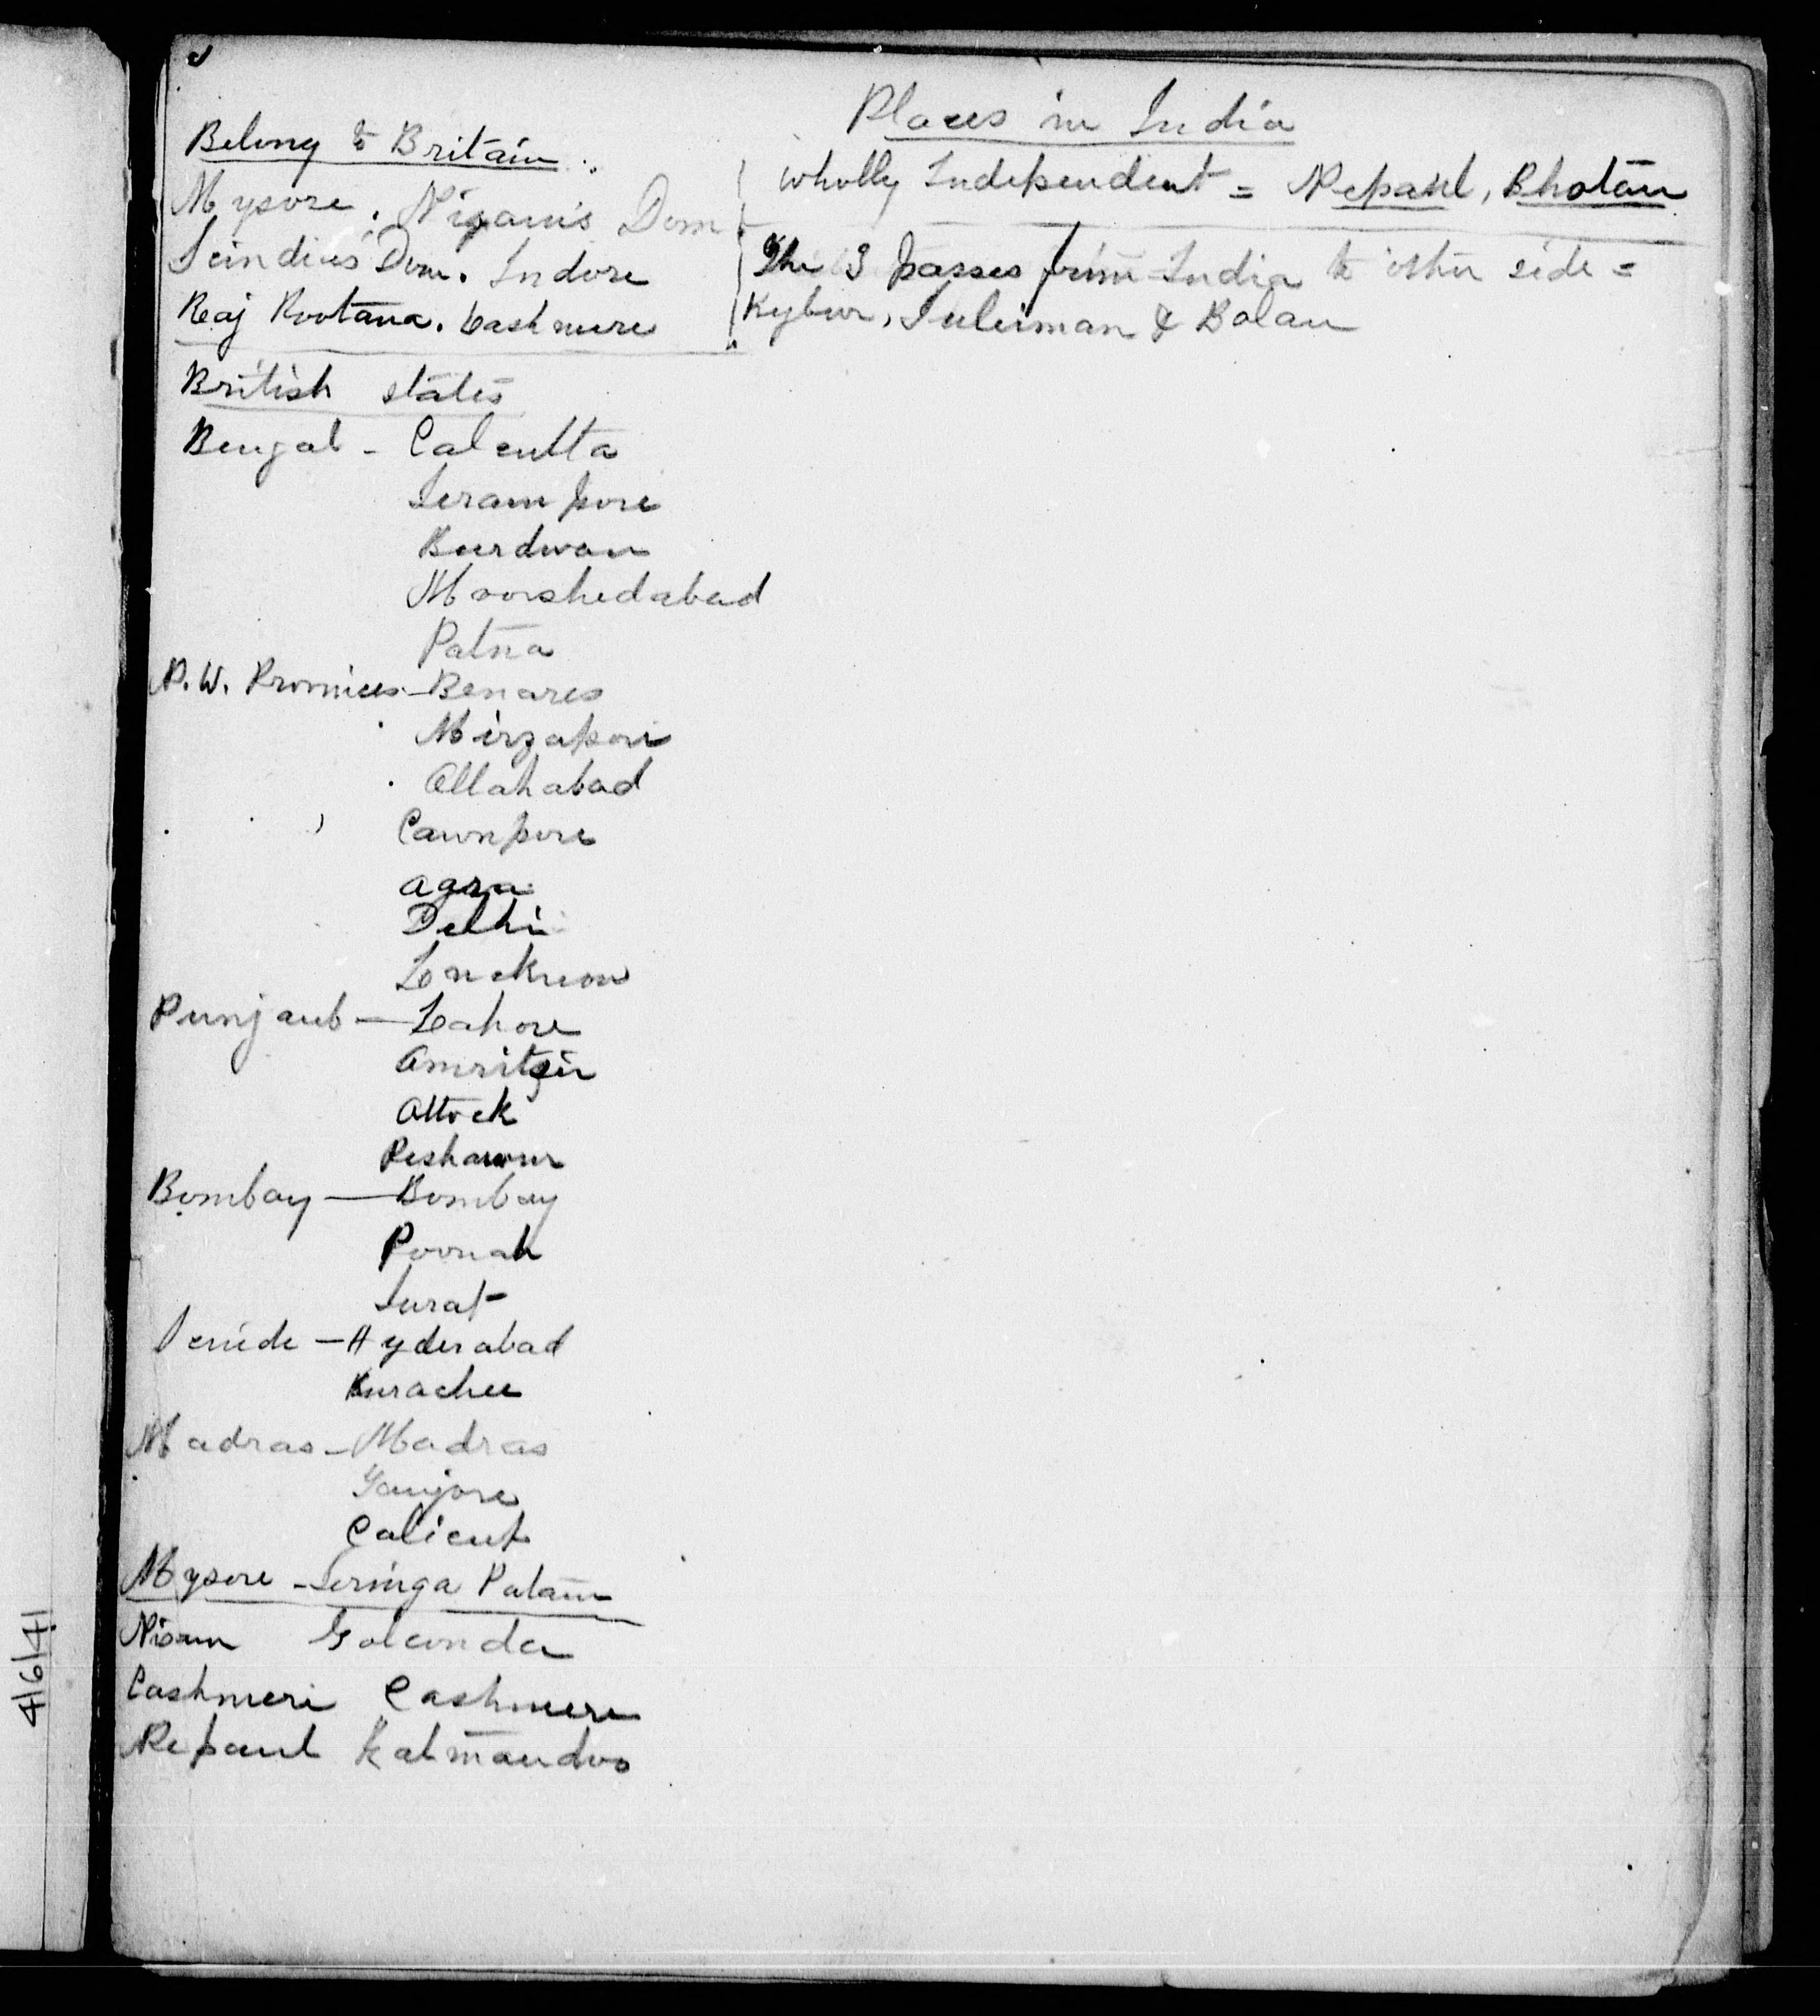 Places in India
Belong to Britain.
Mysore. Nizam's Dom
Scindia's Dom. Indore
Raj Pootana. Cashmere
Wholly Independent = Nepaul, Bhotan
The 3 passes from India to other side =
Kyber, Suleiman & Bolan
British states
Bengal - Calcutta
Serampore
Burdwan
Moorshedabad
Patna
N.W. Provinces - Benares
Mirzapore
Allahabad
Cawnpore
Agra
Delhi
Lucknow
Punjaub - Lahore
Amritsir
Attock
Peshawur
Bombay - Bombay
Poonah
Surat
Scinde - Hyderabad
Kurachee
Madras - Madras
Tanjore
Calicut
Mysore - Seringa Patam
Nizam Golconda
Cashmere Cashmere
Nepaul Katmandoo
4/6/41